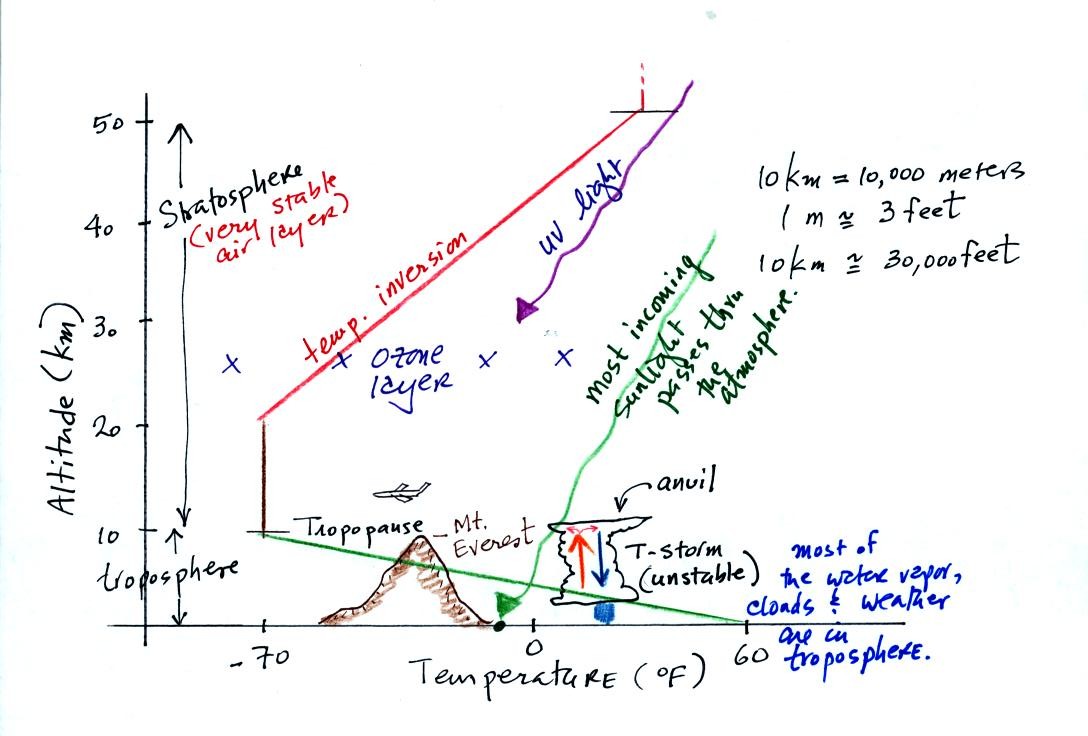 50
40
30
20
10
Altitude (km)
Stratosphere
(very stable
air layer)
temp. inversion
uv light
10 km = 10,000 meters
1 m ≅ 3 feet
10 km ≅ 30,000 feet
x x Ozone x x
layer
most incoming
sunlight
passes thru
the
atmosphere.
anvil
Tropopause
Mt.
Everest
T-storm
(unstable)
troposphere
most of
the water vapor,
clouds & weather
are in
troposphere.
-70
0
60
Temperature (°F)